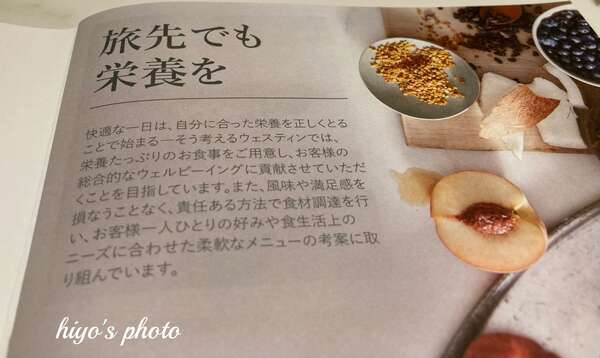 旅先でも
栄養を
快適な一日は、自分に合った栄養を正しくとる
ことで始まる—そう考えるウェスティンでは、
栄養たっぷりのお食事をご用意し、お客様の
総合的なウェルビーイングに貢献させていただ
くことを目指しています。また、風味や満足感を
損なうことなく、責任ある方法で食材調達を行
い、お客様一人ひとりの好みや食生活上の
ニーズに合わせた柔軟なメニューの考案に取
り組んでいます。
hiyo's photo